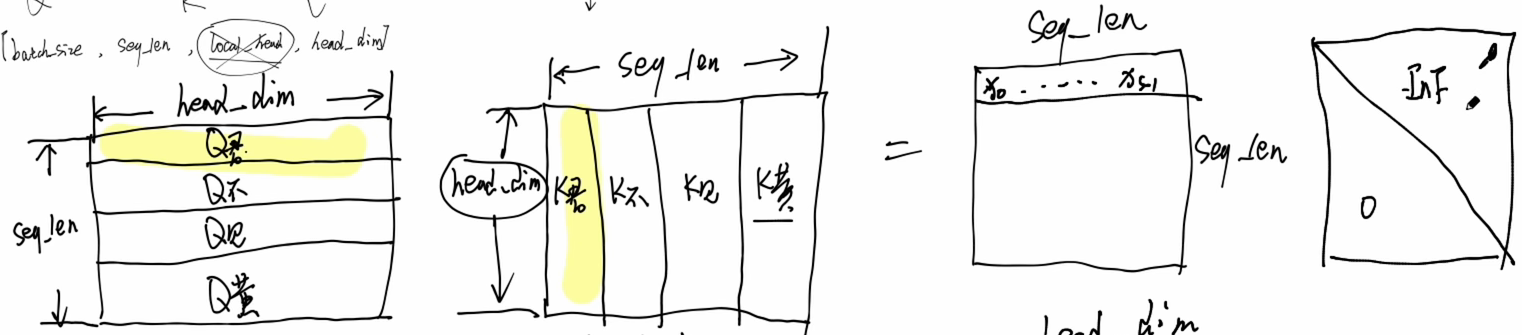 [batch_size , seq_len , local_head , head_dim]
head_dim
seq_len
Q
Q不
Q吃
Q
seq_len
head_dim
K
K不
K吃
K
=
seq_len
x₀ ...... x
seq_len
-Inf
0
head_dim